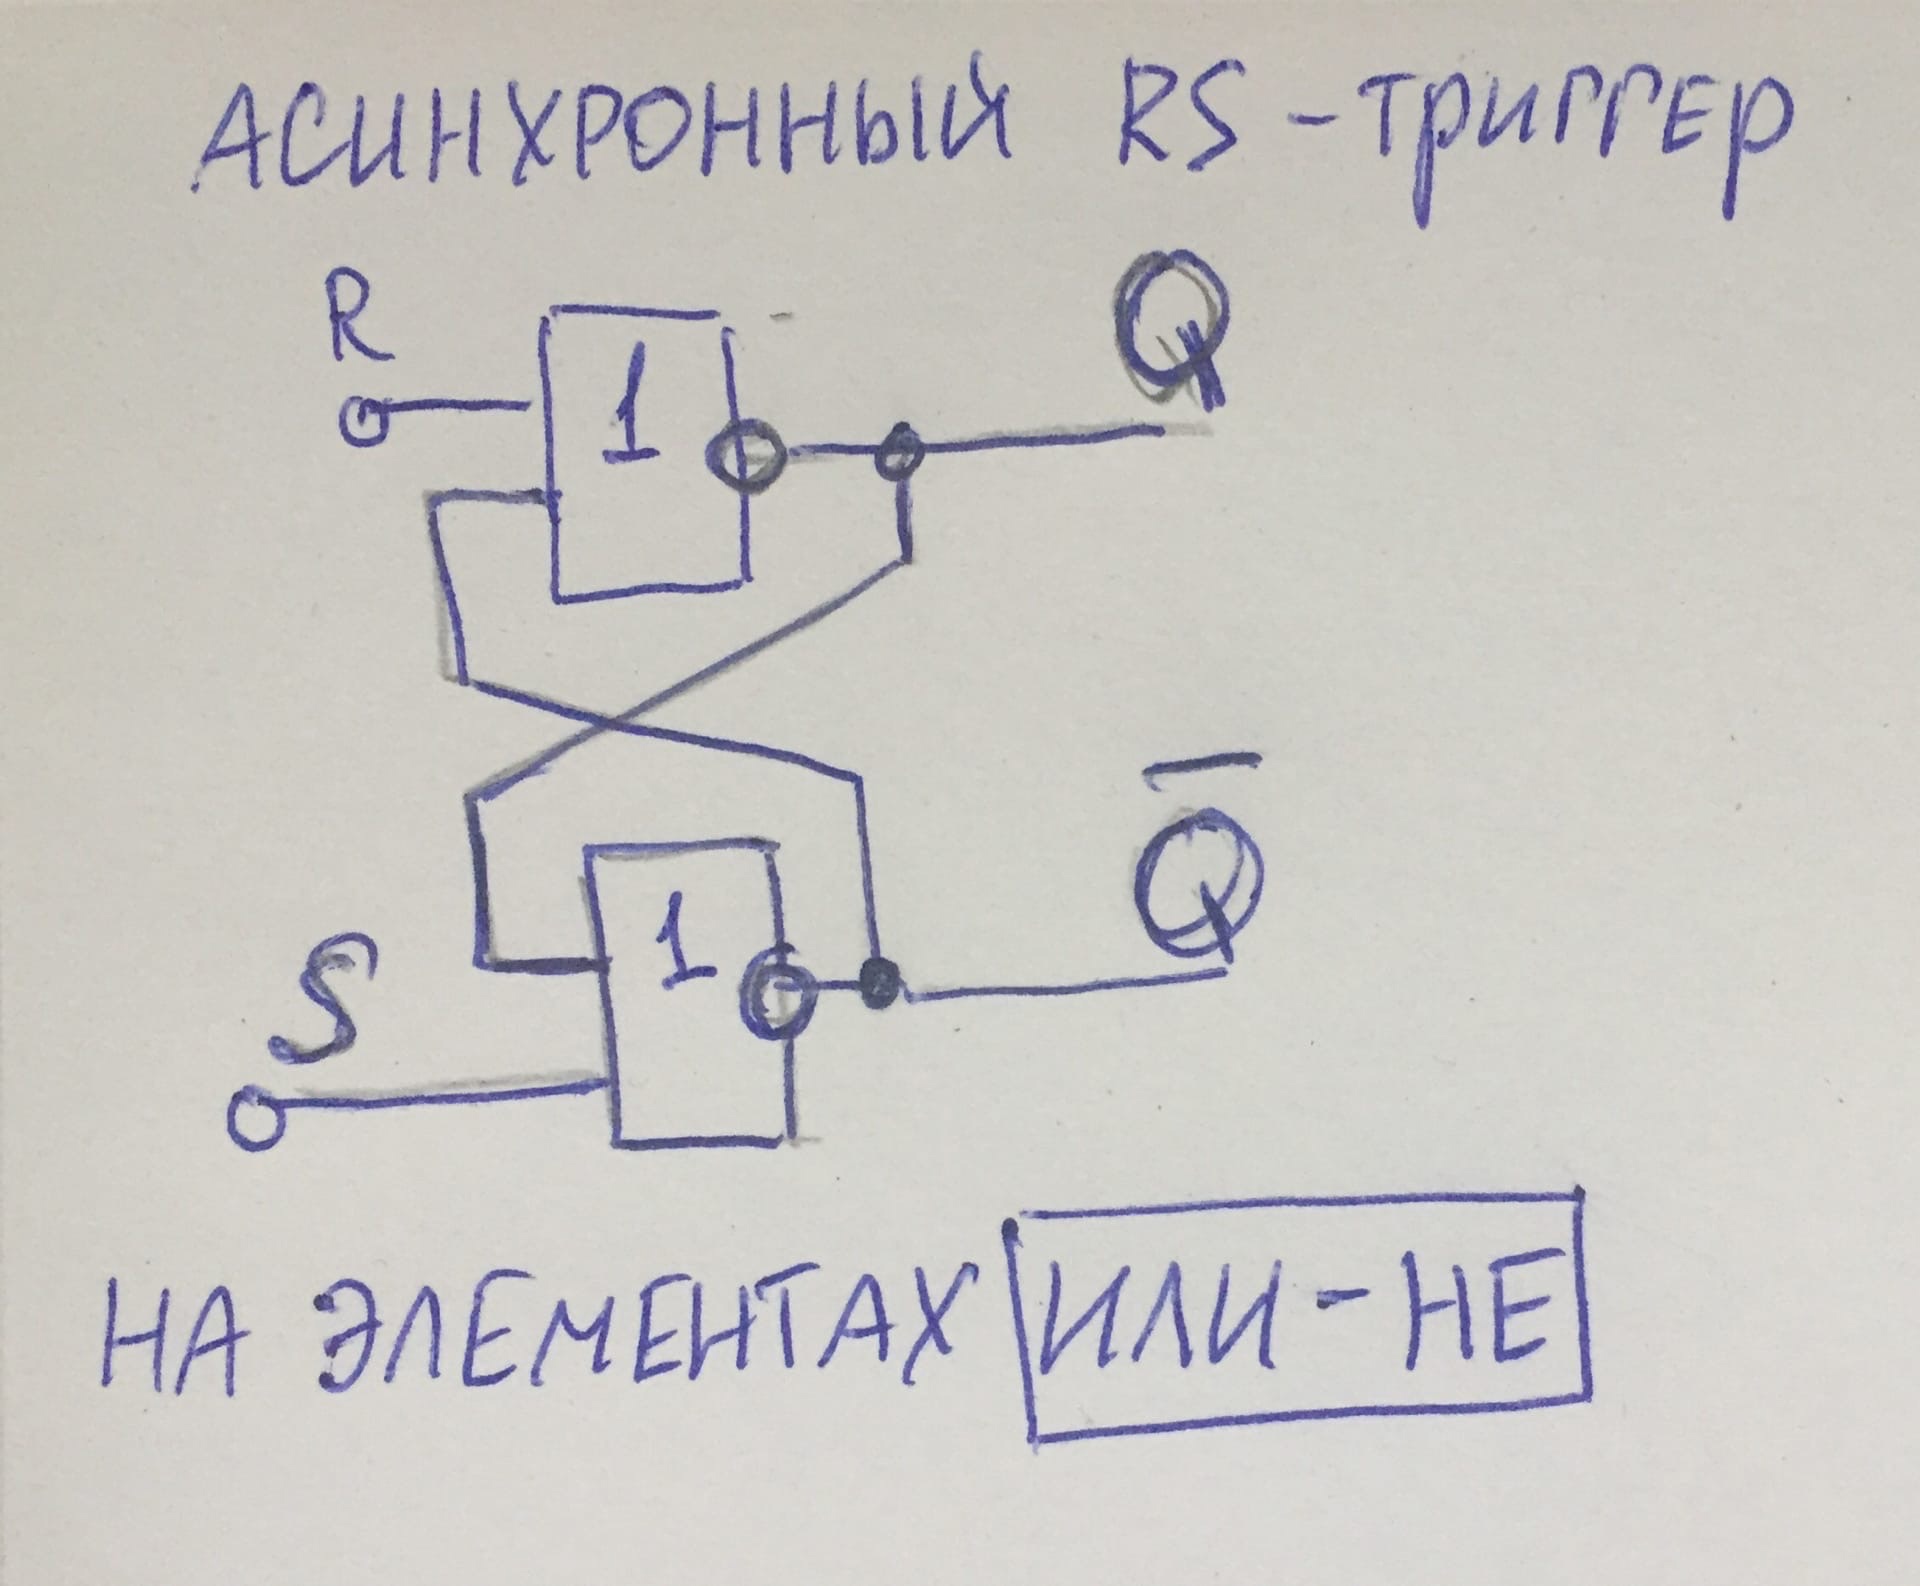 АСИНХРОННЫЙ RS-ТРИГГЕР
R
1
Q
Q̅
S
1
НА ЭЛЕМЕНТАХ ИЛИ-НЕ